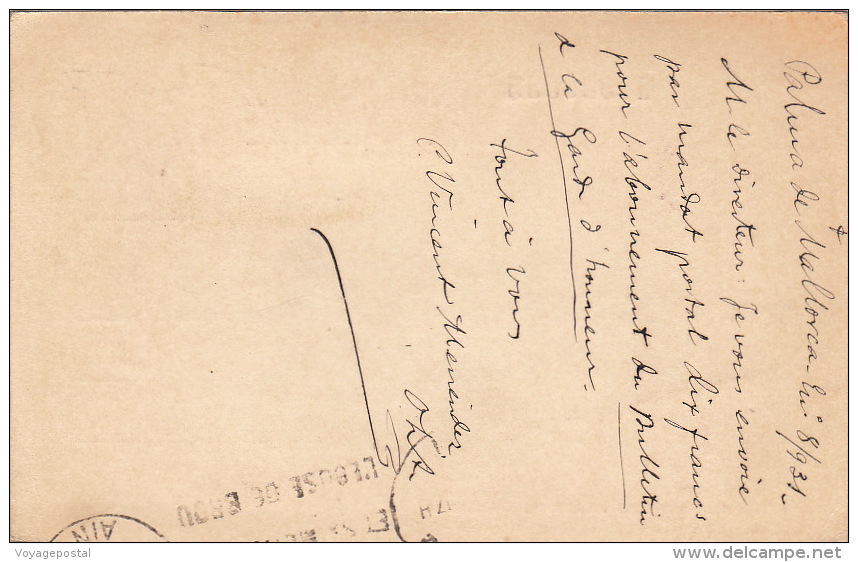 Palma de Mallorca - En.º 8/931 -
M. le directeur: Je vous envoie
par mandat postal dix francs
pour l'abonnement du Bulletin
de la Gard d'honneur.
Tout à vous
P. Vincent
L'EGLISE DE BROU
ET SA
AIN
Voyagepostal
delcampe.net